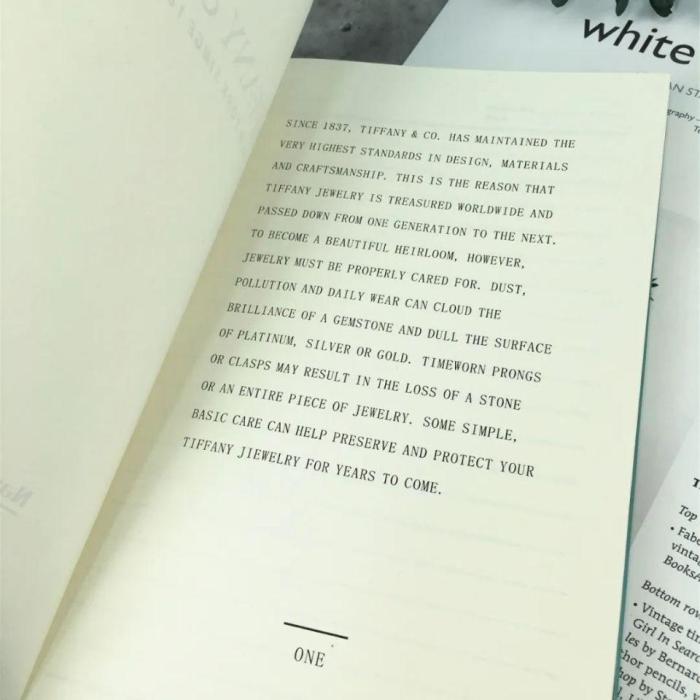 SINCE 1837, TIFFANY & CO. HAS MAINTAINED THE
VERY HIGHEST STANDARDS IN DESIGN, MATERIALS
AND CRAFTSMANSHIP. THIS IS THE REASON THAT
TIFFANY JEWELRY IS TREASURED WORLDWIDE AND
PASSED DOWN FROM ONE GENERATION TO THE NEXT.
TO BECOME A BEAUTIFUL HEIRLOOM, HOWEVER,
JEWELRY MUST BE PROPERLY CARED FOR. DUST,
POLLUTION AND DAILY WEAR CAN CLOUD THE
BRILLIANCE OF A GEMSTONE AND DULL THE SURFACE
OF PLATINUM, SILVER OR GOLD. TIMEWORN PRONGS
OR CLASPS MAY RESULT IN THE LOSS OF A STONE
OR AN ENTIRE PIECE OF JEWELRY. SOME SIMPLE,
BASIC CARE CAN HELP PRESERVE AND PROTECT YOUR
TIFFANY JIEWELRY FOR YEARS TO COME.
ONE
white
Top
Bottom row
• Vintage tin
Girl In Sear
les by Berna